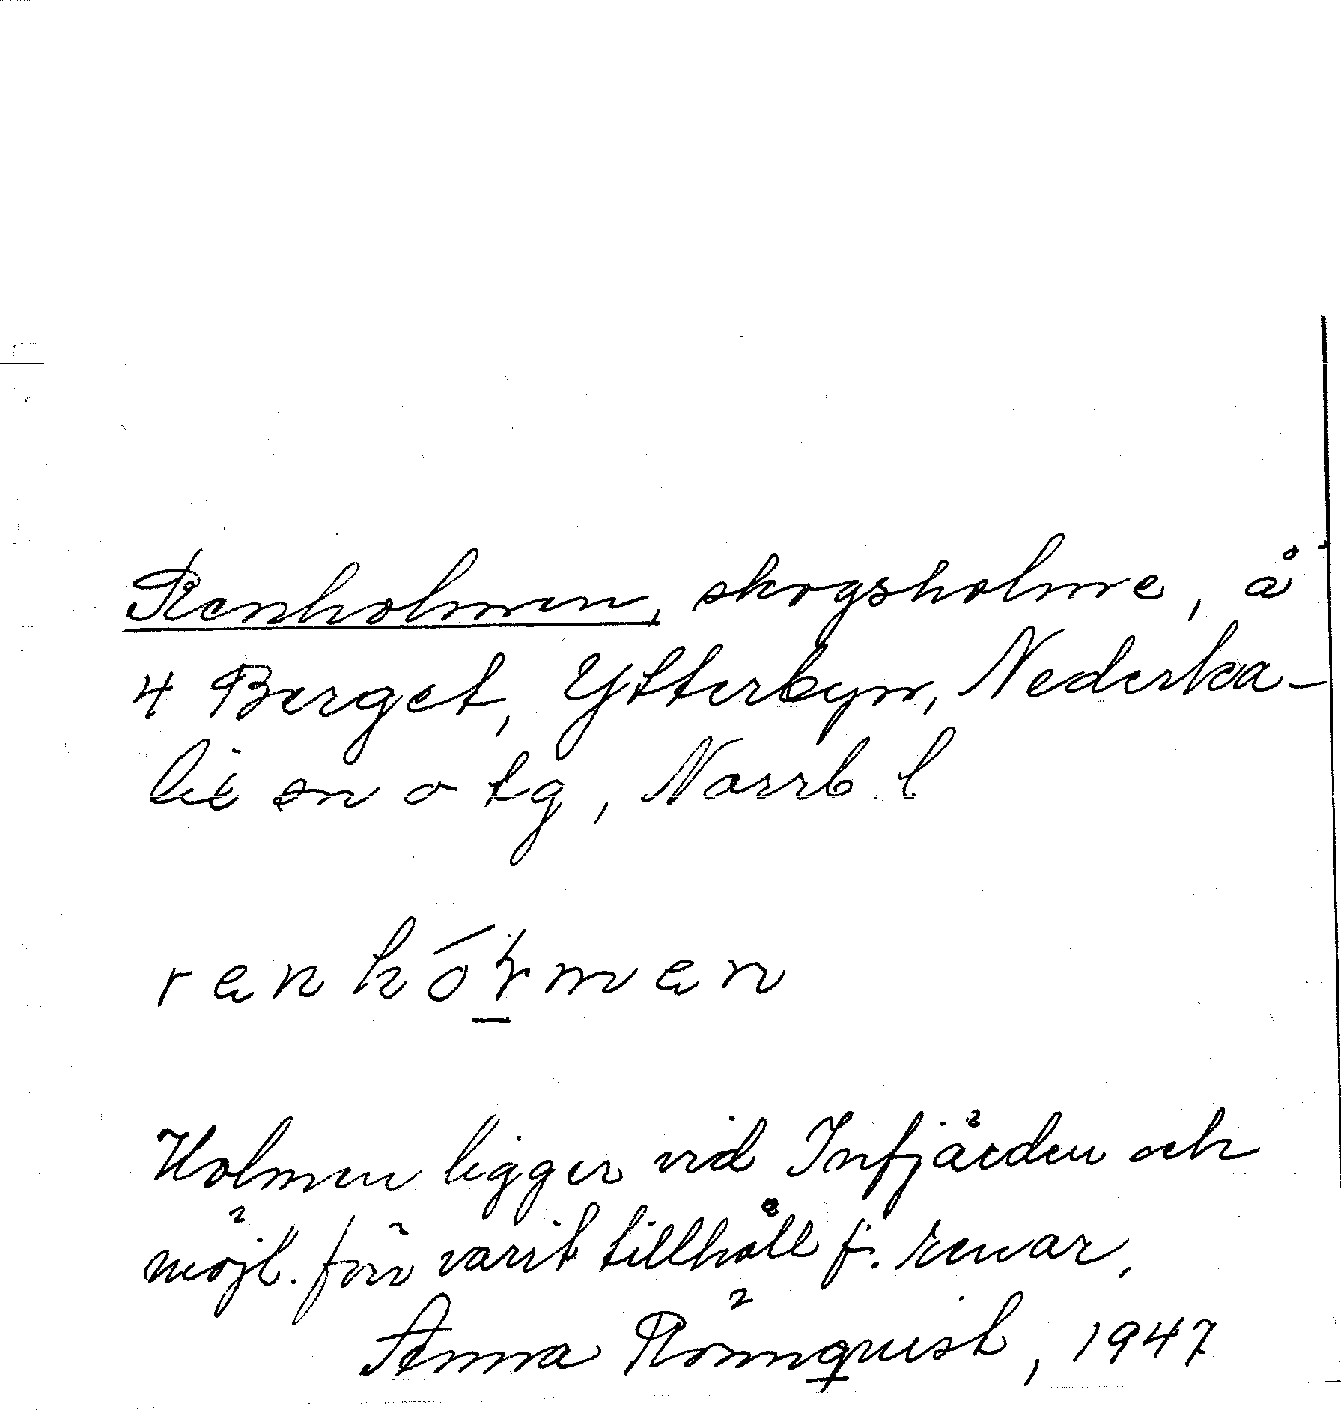 Renholmen, skogsholme, å
4 Berget, Ytterbyn, Nederka-
lix sn o tg, Norrb. l
renhó
Holmen ligger vid Infjärden och
möjl. förr varit tillhåll f. renar.
Anna Rönnquist, 1947